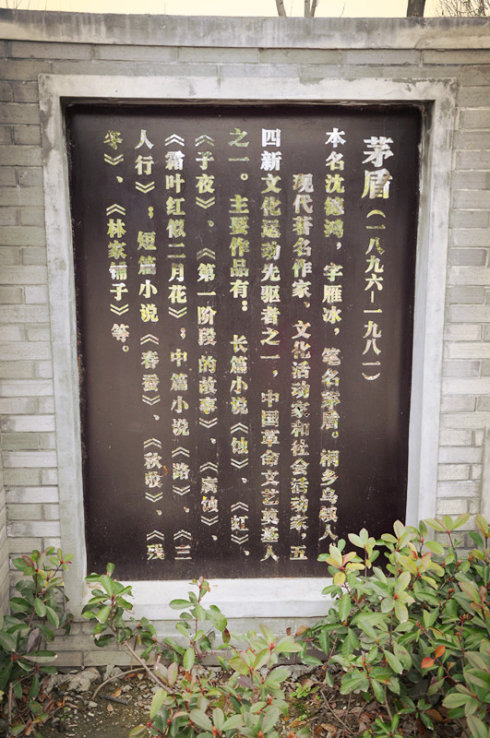 茅盾（一八九六—一九八一）
本名沈德鸿，字雁冰，笔名茅盾。桐乡乌镇人
现代著名作家、文化活动家和社会活动家，五
四新文化运动先驱者之一，中国革命文艺奠基人
之一。主要作品有：长篇小说《蚀》、《虹》、
《子夜》、《第一阶段的故事》、《腐蚀》、
《霜叶红似二月花》；中篇小说《路》、《三
人行》；短篇小说《春蚕》、《秋收》、《残
冬》、《林家铺子》等。